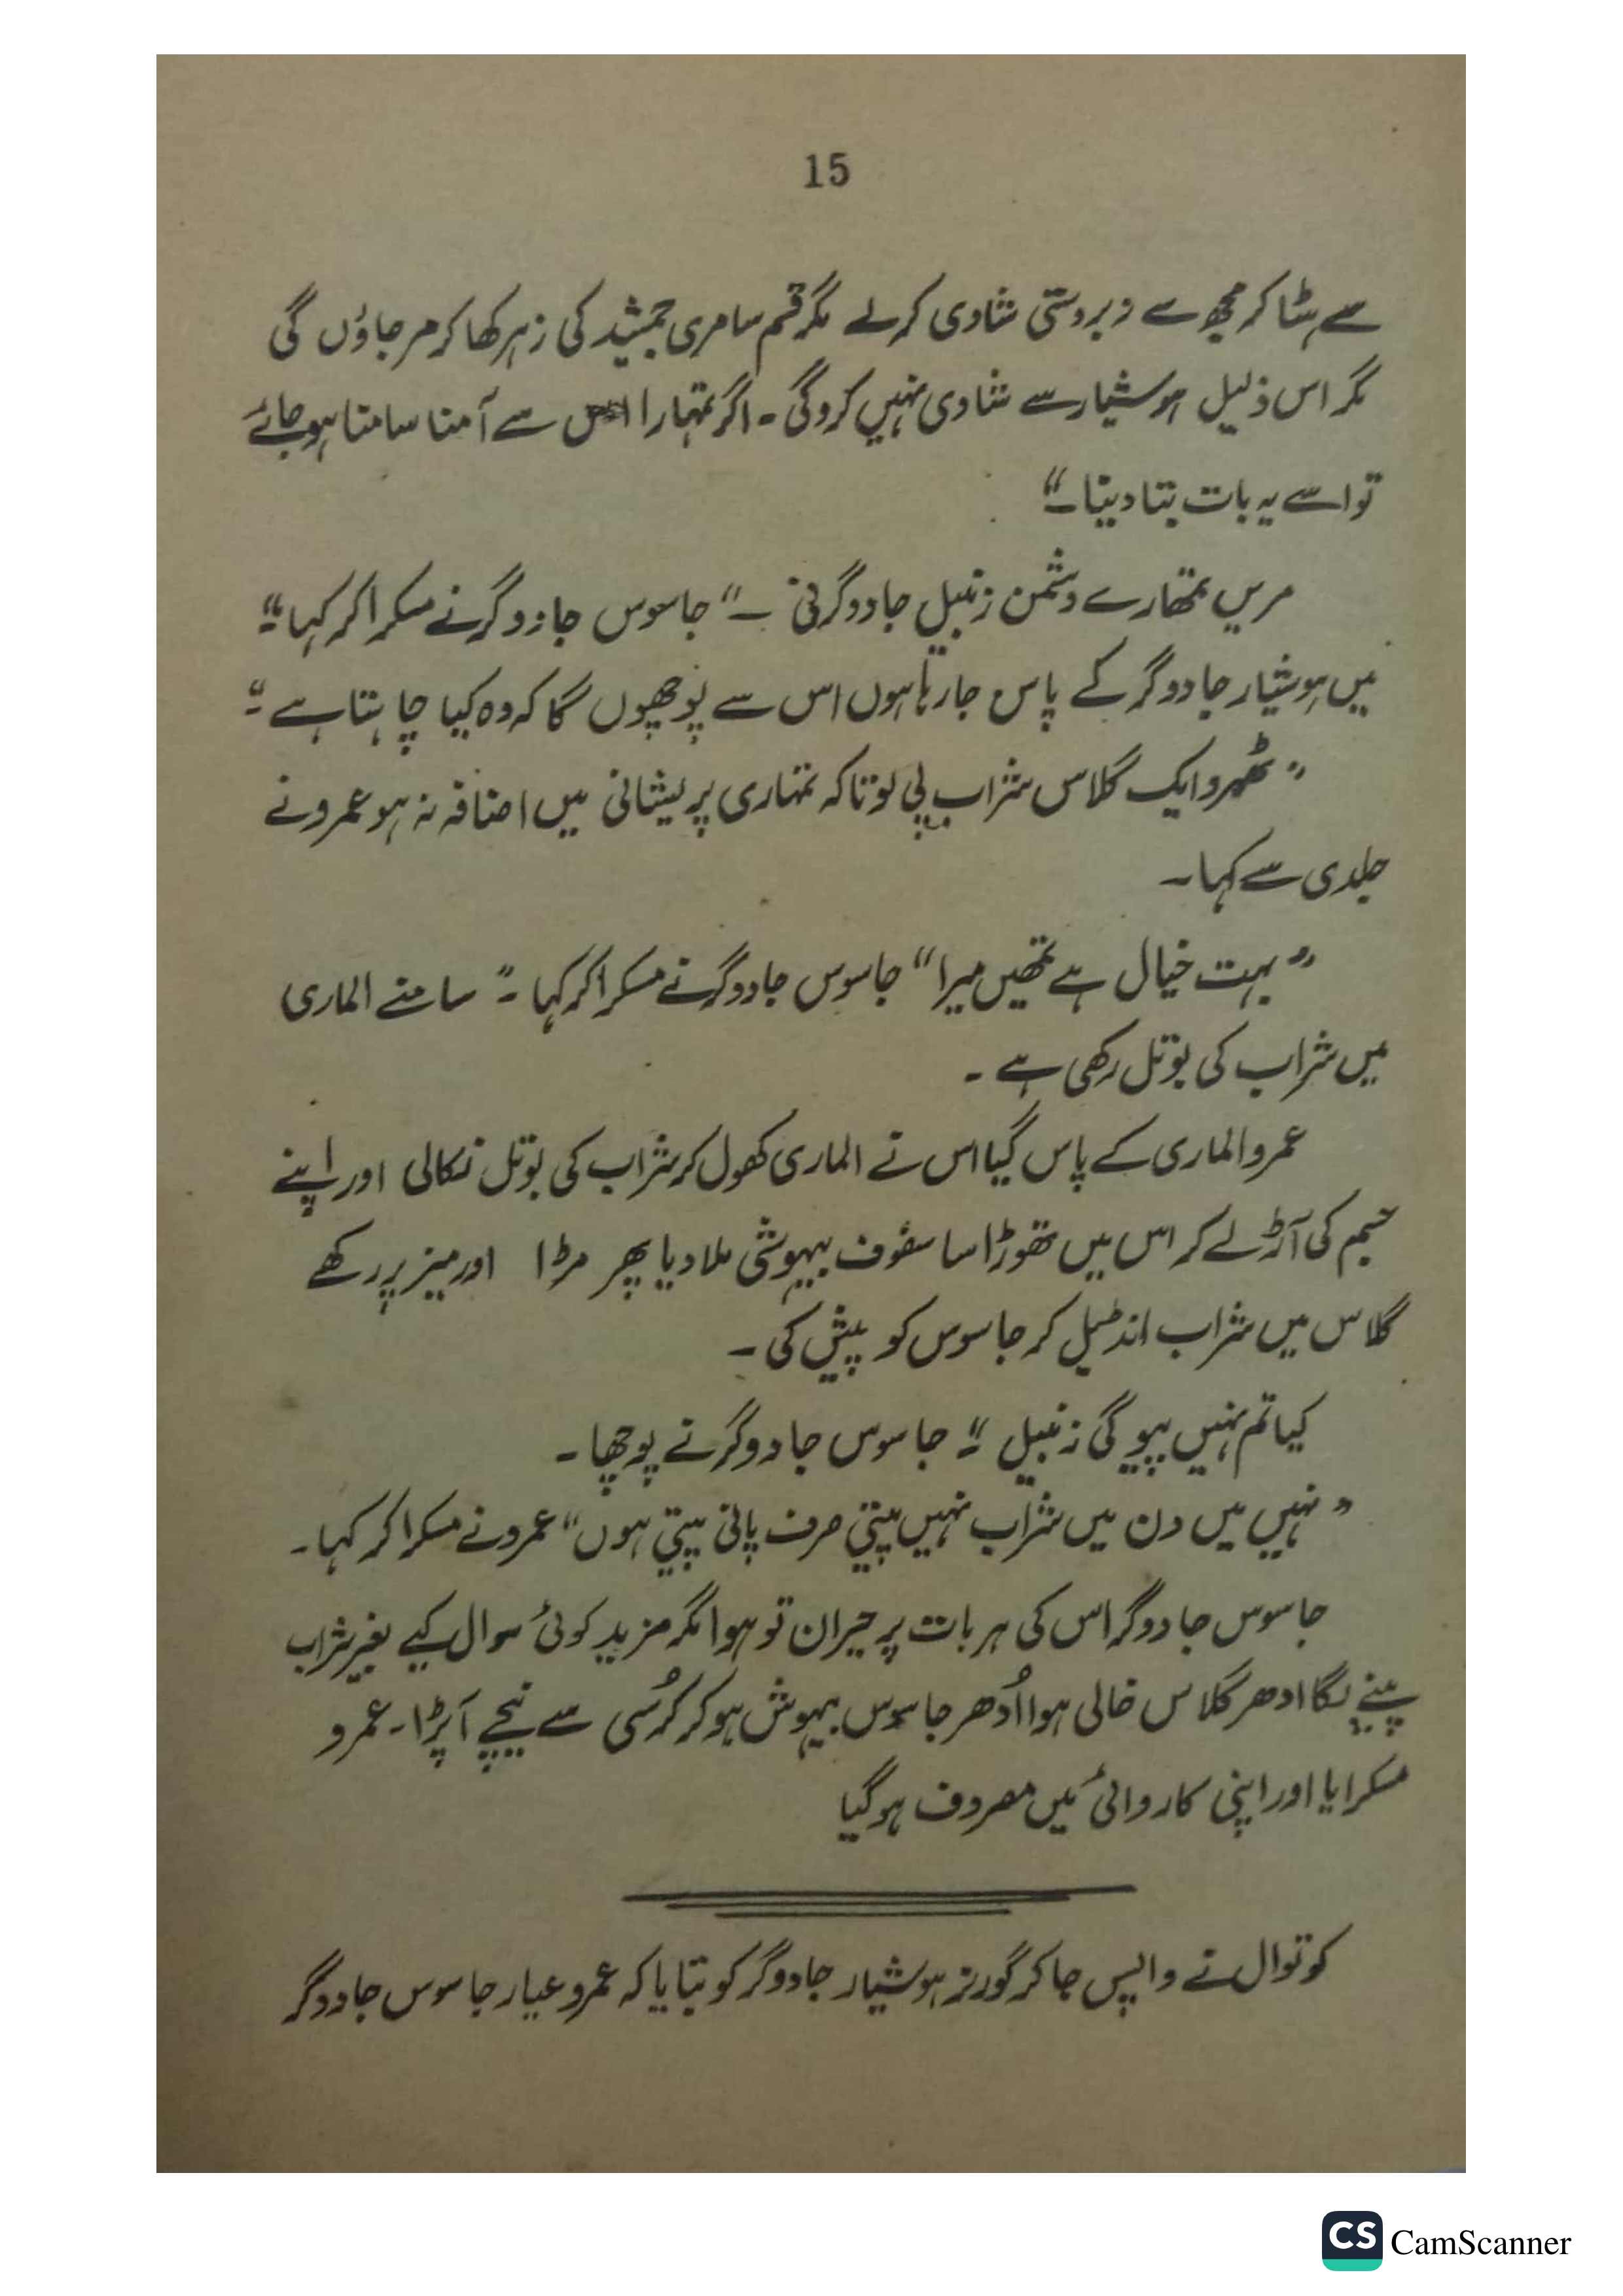 15
سے ہٹا کر مجھ سے زبردستی شادی کر لے مگر قسم سامری جمشید کی زہر کھا کر مر جاؤں گی
مگر اس ذلیل ہوشیار سے شادی نہیں کروگی ۔ اگر تمہارا اس سے آمنا سامنا ہو جائے
تو اسے یہ بات بتا دینا ۔“
مریں تمھارے دشمن زنبیل جادوگرنی ۔“ جاسوس جادوگر نے مسکرا کر کہا ”
میں ہوشیار جادوگر کے پاس جا رہا ہوں اس سے پوچھوں گا کہ وہ کیا چاہتا ہے ۔“
” ٹھہرو ایک گلاس شراب پی لو تاکہ تمہاری پریشانی میں اضافہ نہ ہو عمرو نے
جلدی سے کہا ۔
” بہت خیال ہے تمھیں میرا “ جاسوس جادوگر نے مسکرا کر کہا ۔” سامنے الماری
میں شراب کی بوتل رکھی ہے ۔
عمرو الماری کے پاس گیا اس نے الماری کھول کر شراب کی بوتل نکالی اور اپنے
جسم کی آڑ لے کر اس میں تھوڑا سا سفوف بیہوشی ملا دیا پھر مڑا اور میز پر رکھے
گلاس میں شراب انڈیل کر جاسوس کو پیش کی ۔
کیا تم نہیں پیو گی زنبیل ۔“ جاسوس جادوگر نے پوچھا ۔
” نہیں میں دن میں شراب نہیں پیتی صرف پانی پیتی ہوں “ عمرو نے مسکرا کر کہا ۔
جاسوس جادوگر اس کی ہر بات پر حیران تو ہوا مگر مزید کوئی سوال کیے بغیر شراب
پینے لگا ادھر گلاس خالی ہوا اُدھر جاسوس بیہوش ہو کر کُرسی سے نیچے آ پڑا ۔ عمرو
مسکرایا اور اپنی کاروائی میں مصروف ہو گیا
کوتوال نے واپس جا کر گورنر ہوشیار جادوگر کو بتایا کہ عمرو عیار جاسوس جادوگر
CS CamScanner